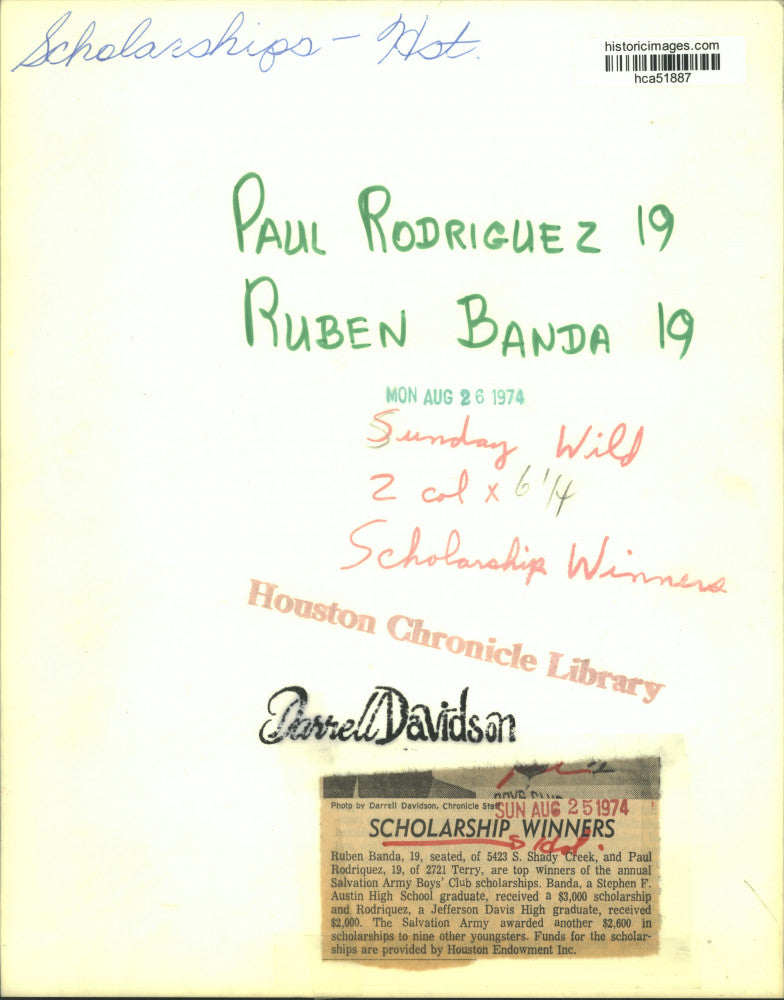 Scholarships - Hst.
historicimages.com
hca51887
PAUL RODRIGUEZ 19
RUBEN BANDA 19
MON AUG 26 1974
Sunday Wild
2 col x 6 1/4
Scholarship Winners
Houston Chronicle Library
Darrell Davidson
BOYS CLUB
Photo by Darrell Davidson, Chronicle Staff
SUN AUG 25 1974
SCHOLARSHIP WINNERS
Ruben Banda, 19, seated, of 5423 S. Shady Creek, and Paul
Rodriquez, 19, of 2721 Terry, are top winners of the annual
Salvation Army Boys' Club scholarships. Banda, a Stephen F.
Austin High School graduate, received a $3,000 scholarship
and Rodriquez, a Jefferson Davis High graduate, received
$2,000. The Salvation Army awarded another $2,600 in
scholarships to nine other youngsters. Funds for the scholar-
ships are provided by Houston Endowment Inc.